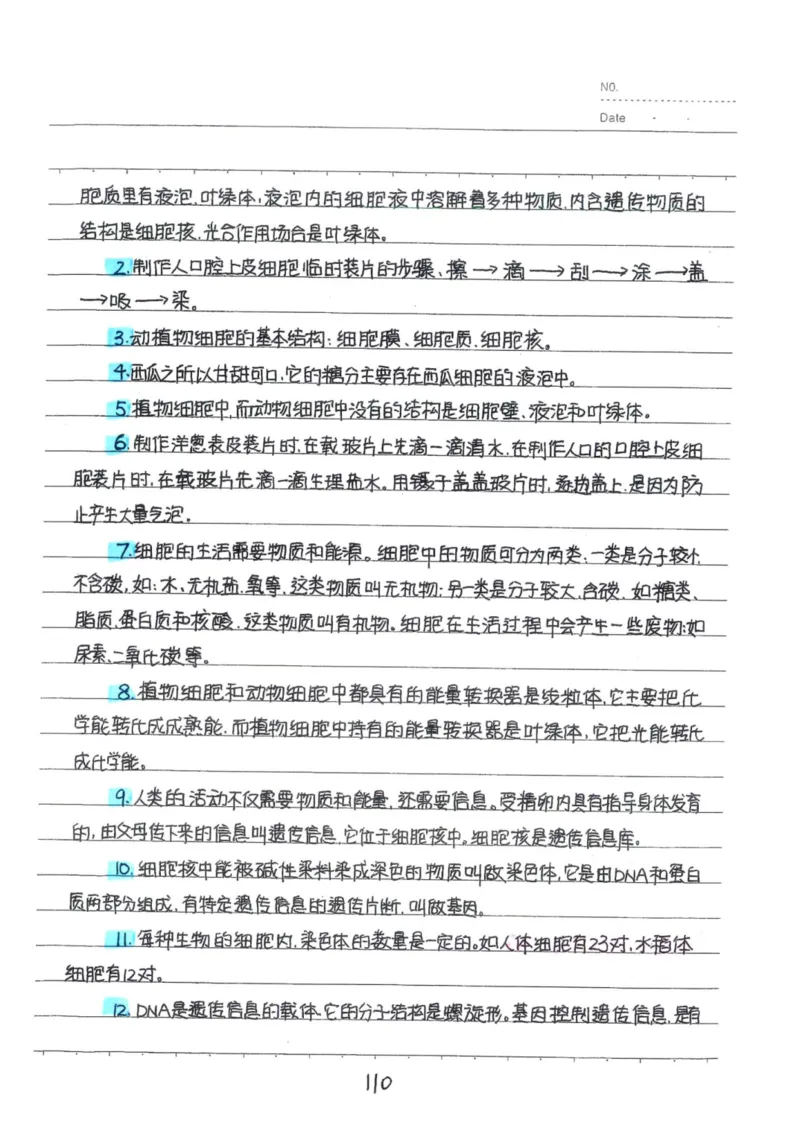 NO.
Date - -
胞质里有液泡、叶绿体,液泡内的细胞液中溶解着多种物质,内含遗传物质的
结构是细胞核,光合作用场合是叶绿体。
2.制作人口腔上皮细胞临时装片的步骤、擦→滴→刮→涂→盖
→吸→染。
3.动植物细胞的基本结构:细胞膜、细胞质、细胞核。
4.西瓜之所以甘甜可口,它的糖分主要存在西瓜细胞的液泡中。
5.植物细胞中,而动物细胞中没有的结构是细胞壁、液泡和叶绿体。
6.制作洋葱表皮装片时,在载玻片上先滴一滴清水,在制作人口的口腔上皮细
胞装片时,在载玻片先滴一滴生理盐水。用镊子盖盖玻片时,逐边盖上,是因为防
止产生大量气泡。
7.细胞的生活需要物质和能源。细胞中的物质可分为两类:一类是分子较小
不含碳,如:水、无机盐、氧等,这类物质叫无机物;另一类是分子较大,含碳,如糖类、
脂质、蛋白质和核酸,这类物质叫有机物。细胞在生活过程中会产生一些废物:如
尿素、二氧化碳等。
8.植物细胞和动物细胞中都具有的能量转换器是线粒体,它主要把化
学能转化成成熟能,而植物细胞中持有的能量转换器是叶绿体,它把光能转化
成化学能。
9.人类的活动不仅需要物质和能量,还需要信息。受精卵内具有指导身体发育
的,由父母传下来的信息叫遗传信息,它位于细胞核中。细胞核是遗传信息库。
10.细胞核中能被碱性染料染成深色的物质叫做染色体,它是由DNA和蛋白
质两部分组成,有特定遗传信息的遗传片断,叫做基因。
11.每种生物的细胞内,染色体的数量是一定的。如人体细胞有23对,水稻体
细胞有12对。
12.DNA是遗传信息的载体、它的分子结构是螺旋形。基因控制遗传信息,是有
110